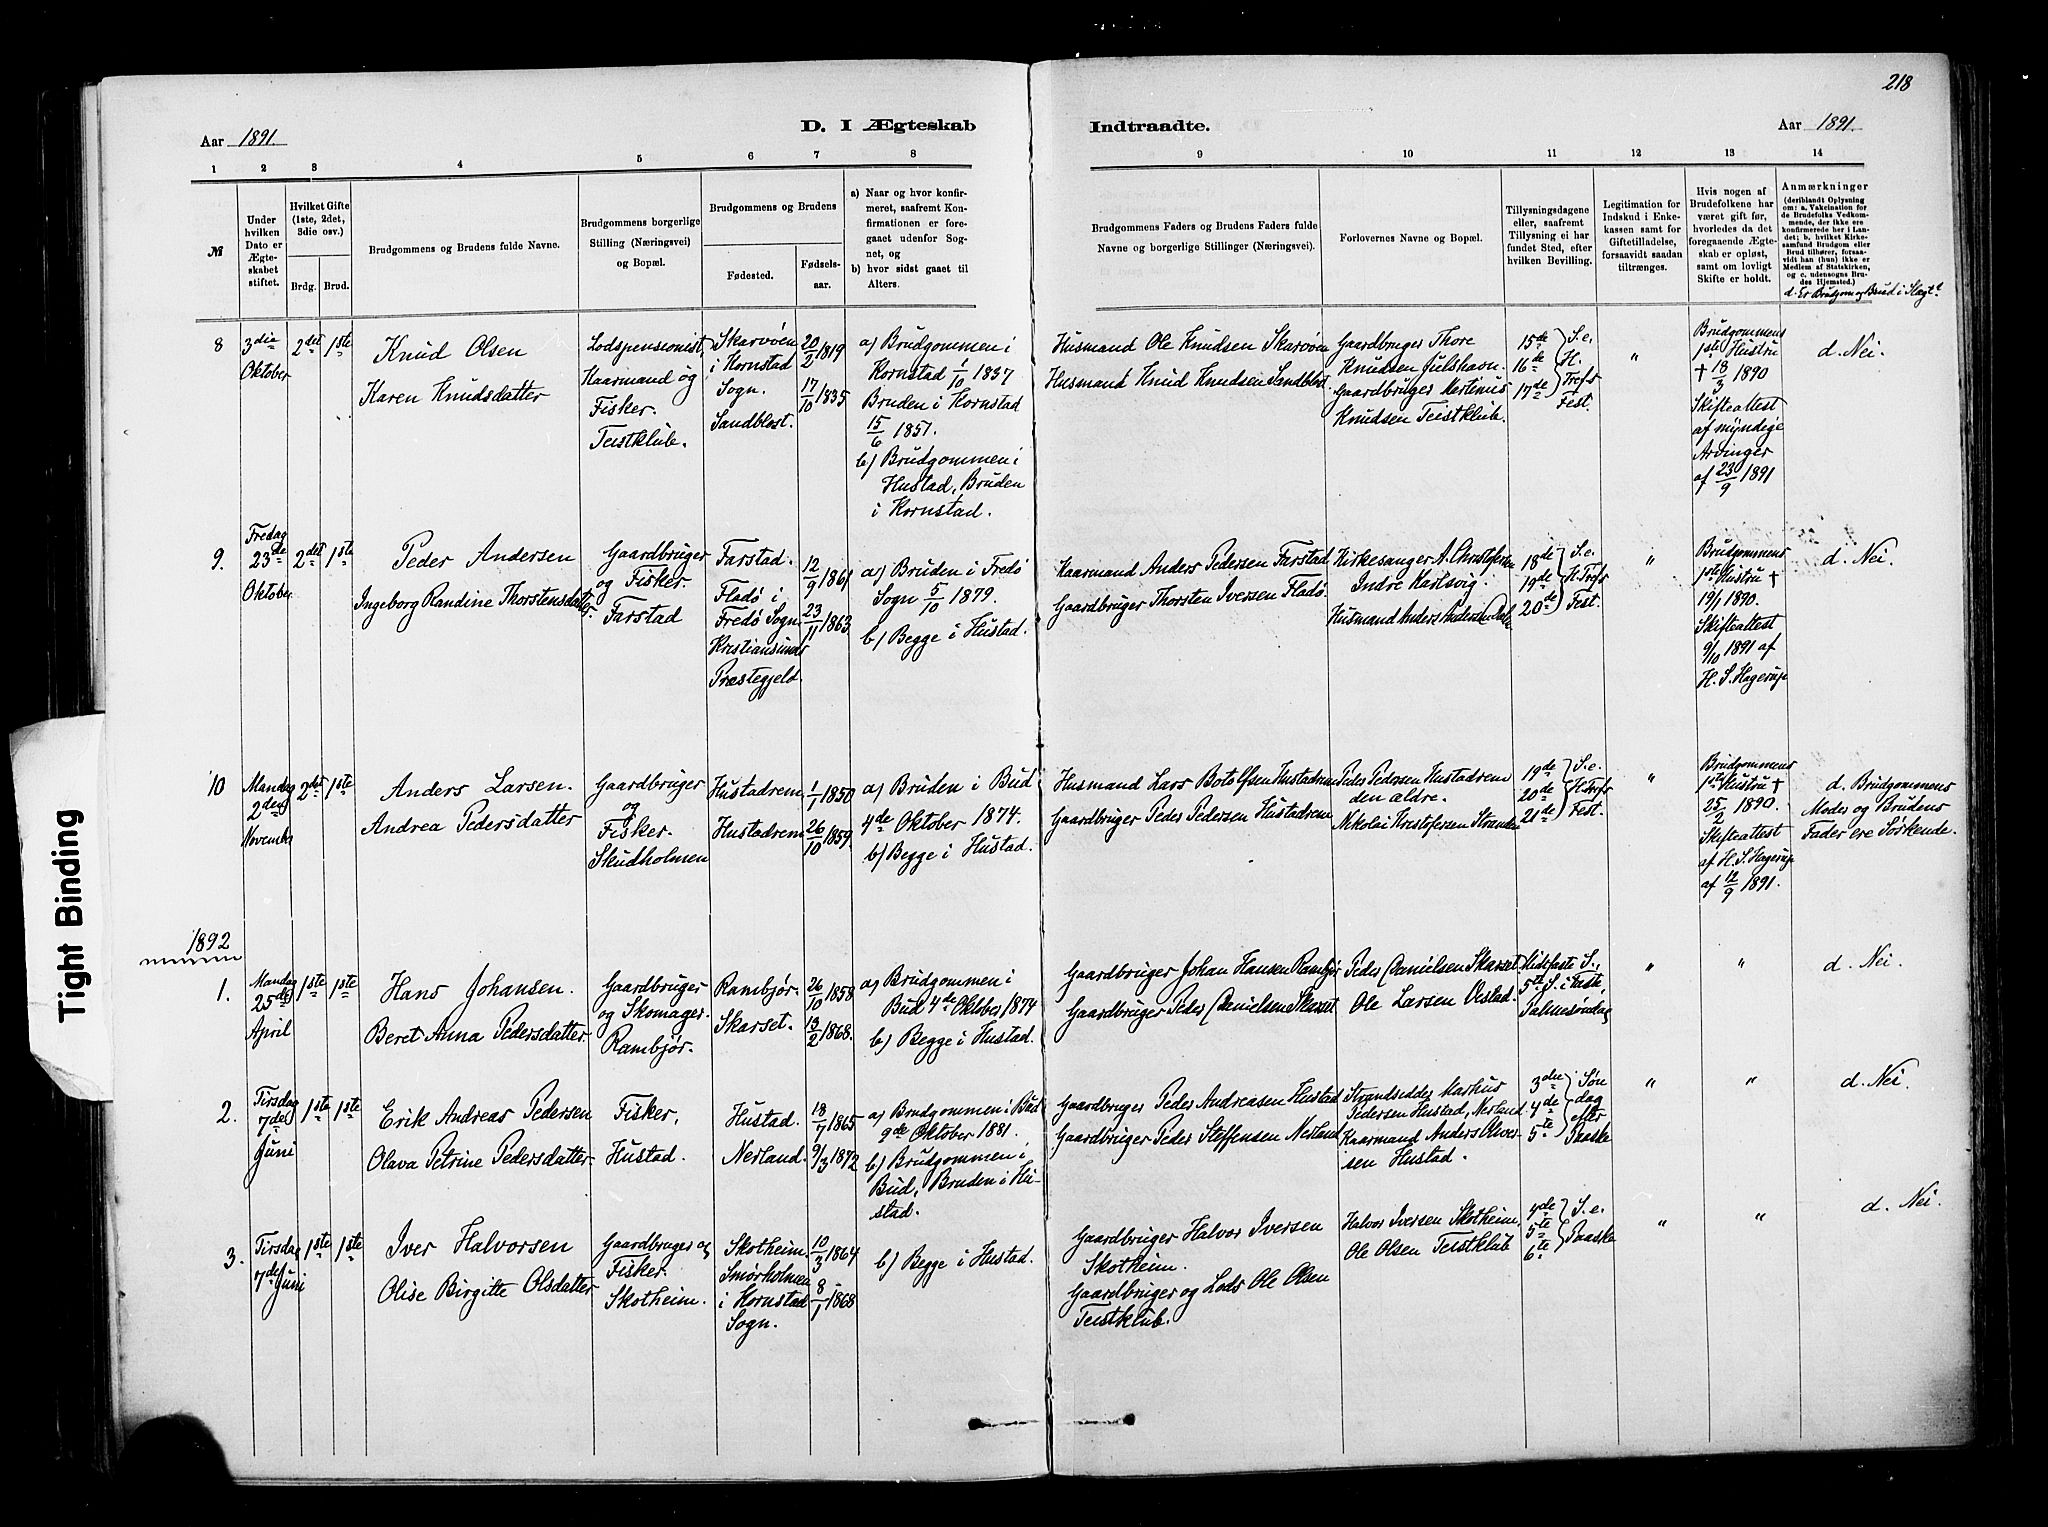 218
D. I Ægteskab Indtraadte.
Aar 1891.
Aar 1891.
1 2 3 4 5 6 7 8 9 10 11 12 13 14
№
Under
hvilken
Dato er
Ægte-
skabet
stiftet.
Hvilket Gifte
(1ste, 2det,
3die osv.)
Brdg. Brud.
Brudgommens og Brudens fulde Navne.
Brudgommens borgerlige
Stilling (Næringsvei)
og Bopæl.
Brudgommens og Brudens
Fødested.
Fødsels-
aar.
a) Naar og hvor konfir-
meret, saafremt Kon-
firmationen er fore-
gaaet udenfor Sog-
net, og
b) hvor sidst gaaet til
Alters.
Brudgommens Faders og Brudens Faders fulde
Navne og borgerlige Stillinger (Næringsvei).
Forlovernes Navne og Bopæl.
Tillysningsdagene
eller, saafremt
Tillysning ei har
fundet Sted, efter
hvilken Bevilling.
Legitimation for
Indskud i Enke-
kassen samt for
Giftetilladelse,
forsaavidt saadan
tiltrænges.
Hvis nogen af
Brudefolkene har
været gift før,
hvorledes da det
foregaaende Ægte-
skab er opløst,
samt om lovligt
Skifte er holdt.
Anmærkninger
(deriblandt Oplysning
om: a. Vakcination for
de Brudefolks Vedkom-
mende, der ikke ere
konfirmerede her i Lan-
det; b. hvilket Kirke-
samfund Brudgom eller
Brud tilhører, forsaa-
vidt han (hun) ikke er
Medlem af Statskirken,
og c. udensogns Bru-
des Hjemsted.)
d. Er Brudgom og Brud i Slægt?
8
3die
Oktober
2det 1ste
Knud Olsen
Karen Knudsdatter
Lodspensionist,
Kaarmand og
Fisker.
Teistklub.
Skarvøen
i Kornstad
Sogn.
Sandblost.
20/2 1819
17/10 1835
a) Brudgommen i
Kornstad 1/10 1837
Bruden i Kornstad
15/6 1851.
b) Brudgommen i
Hustad, Bruden
i Kornstad.
Husmand Ole Knudsen Skarvøen
Husmand Knud Knudsen Sandblost.
Gaardbruger Thore
Knudsen Julshavn.
Gaardbruger Martinus
Knudsen Teistklub.
15de
16de
17de
S. e.
H.
Trefs
Fest.
"
Brudgommens
1ste Hustru
† 18/3 1890
Skifteattest
af myndige
Arvinger
af 23/9 1891
d. Nei.
9.
Fredag
23de
Oktober
2det 1ste
Peder Andersen
Ingeborg Randine Thorstensdatter.
Gaardbruger
og Fisker.
Farstad
Farstad.
Fladø i
Fredø Sogn
Kristiansunds
Præstegjeld.
12/9 1861
23/11 1863
a) Bruden i Fredø
Sogn 5/10 1879.
b) Begge i Hustad.
Kaarmand Anders Pedersen Farstad
Gaardbruger Thorsten Iversen Fladø.
Kirkesanger A. Christofersen
Indre Karlsvig.
Husmand Anders Andersen
18de
19de
20de
S. e.
H. Trefs
Fest.
"
Brudgommens
1ste Hustru †
19/1 1890.
Skifteattest
9/10 1891 af
H. S. Hagerup
d. Nei.
10
Mandag
2den
Novembr
2det 1ste
Anders Larsen.
Andrea Pedersdatter
Gaardbruger
og
Fisker.
Skudholmen
Hustadrem.
Hustadrem.
1/1 1850
26/10 1859.
a) Bruden i Bud
4de Oktober 1874.
b) Begge i Hustad.
Husmand Lars Botolfsen Hustadrem
Gaardbruger Peder Pedersen Hustadrem
Peder Pedersen Hustadrem
den ældre.
Nikolai Kristofersen Stranden
19de
20de
21de
S. e.
H. Trefs
Fest.
"
Brudgommens
1ste Hustru †
25/2 1890.
Skifteattest
af H. S. Hagerup
af 12/9 1891.
d. Brudgommens
Moder og Brudens
Fader ere Søskende.
1892
1.
Mandag
25de
April
1ste 1ste
Hans Johansen.
Beret Anna Pedersdatter.
Gaardbruger
og Skomager.
Rambjør.
Rambjør.
Skarset.
26/10 1858
13/2 1868.
a) Brudgommen i
Bud 4de Oktober 1874
b) Begge i Hustad.
Gaardbruger Johan Hansen Rambjør
Gaardbruger Peder Danielsen Skarset
Peder Danielsen Skarset
Ole Larsen Vestad.
Midfaste S.,
5te S. i Faste,
Palmesøndag
"
"
d. Nei.
2.
Tirsdag
7de
Juni
1ste 1ste
Erik Andreas Pedersen
Olava Petrine Pedersdatter.
Fisker,
Hustad.
Hustad.
Nerland.
18/7 1865
9/3 1872
a) Brudgommen i Bud
9de Oktober 1881.
b) Brudgommen i
Bud, Bruden i Hu-
stad.
Gaardbruger Peder Andreasen Hustad
Gaardbruger Peder Steffensen Nerland
Strandsidder Markus
Pedersen Hustad, Nerland
Kaarmand Anders Oliver-
sen Hustad.
3die
4de
5te
Søn
dag
efter
Paaske
"
"
d. Nei.
3.
Tirsdag
7de Juni
1ste 1ste
Iver Halvorsen
Olise Birgitte Olsdatter
Gaardbruger og
Fisker.
Skotheim.
Skotheim.
Smørholmen
i Kornstad
Sogn.
10/3 1864
8/1 1868
b) Begge i Hustad.
Gaardbruger Halvor Iversen
Skotheim.
Gaardbruger og Lods Ole Olsen
Teistklub.
Halvor Iversen Skotheim,
Ole Olsen Teistklub
4de
5te
6te
S. e.
Paaske
"
"
d. Nei.
Tight Binding